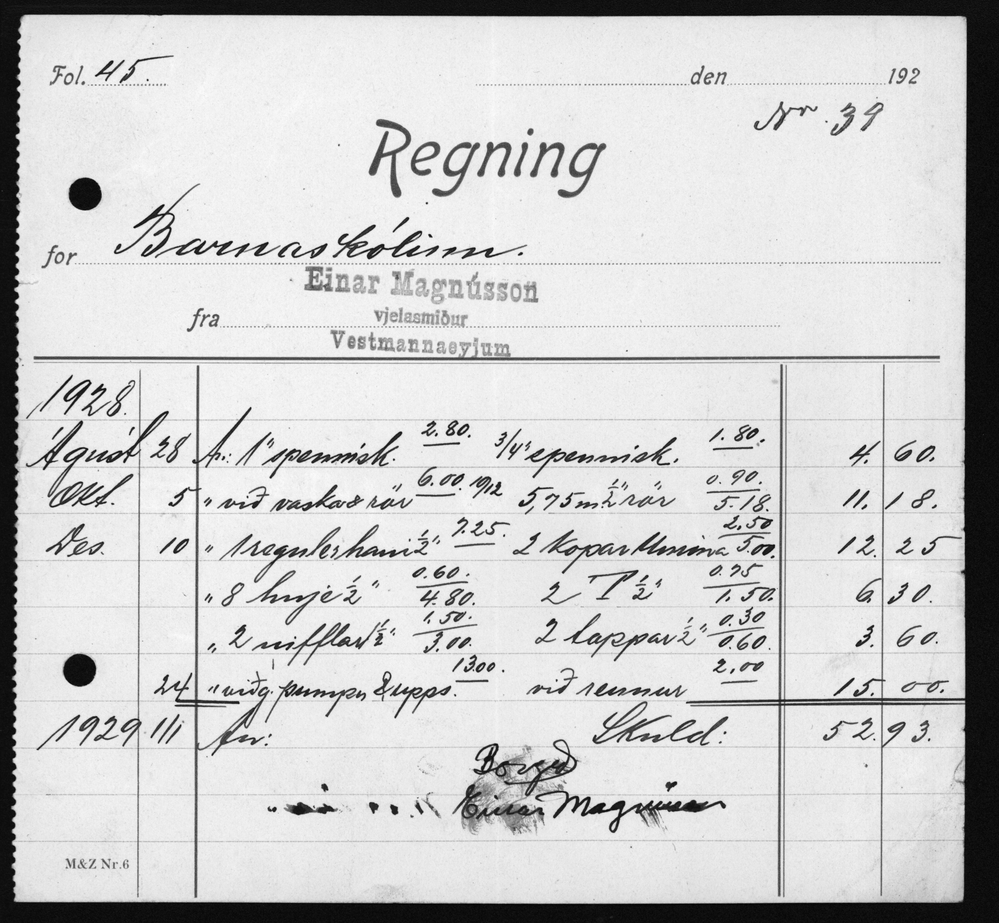 Fol. 45. den 192
Nr. 39
Regning
for Barnaskólinn.
Einar Magnússon
fra vjelasmiður
Vestmannaeyjum
1928.
Ágúst 28 An: 1" spennisk. 2.80. 3/4" spennisk. 1.80. 4.60.
Okt. 5 " við vaska & rör 6.00. 10/12 5,75 m 1/2" rör 0.90. 5.18. 11.18.
Des. 10 " 1 reguler hani 1/2" 7.25. 2 kopar 2.50 5.00. 12.25
" 8 hnje 1/2" 0.60. 4.80. 2 T 1/2" 0.75 1.50. 6.30.
" 2 nifflar 1/2" 1.50. 3.00. 2 tappar 1/2" 0.30 0.60. 3.60.
24 " viðg. pumpu & upps. 13.00. við rennur 2.00 15.00.
1929 1/1 An: Skuld: 52.93.
Borgað
Einar Magnússon
M&Z Nr. 6